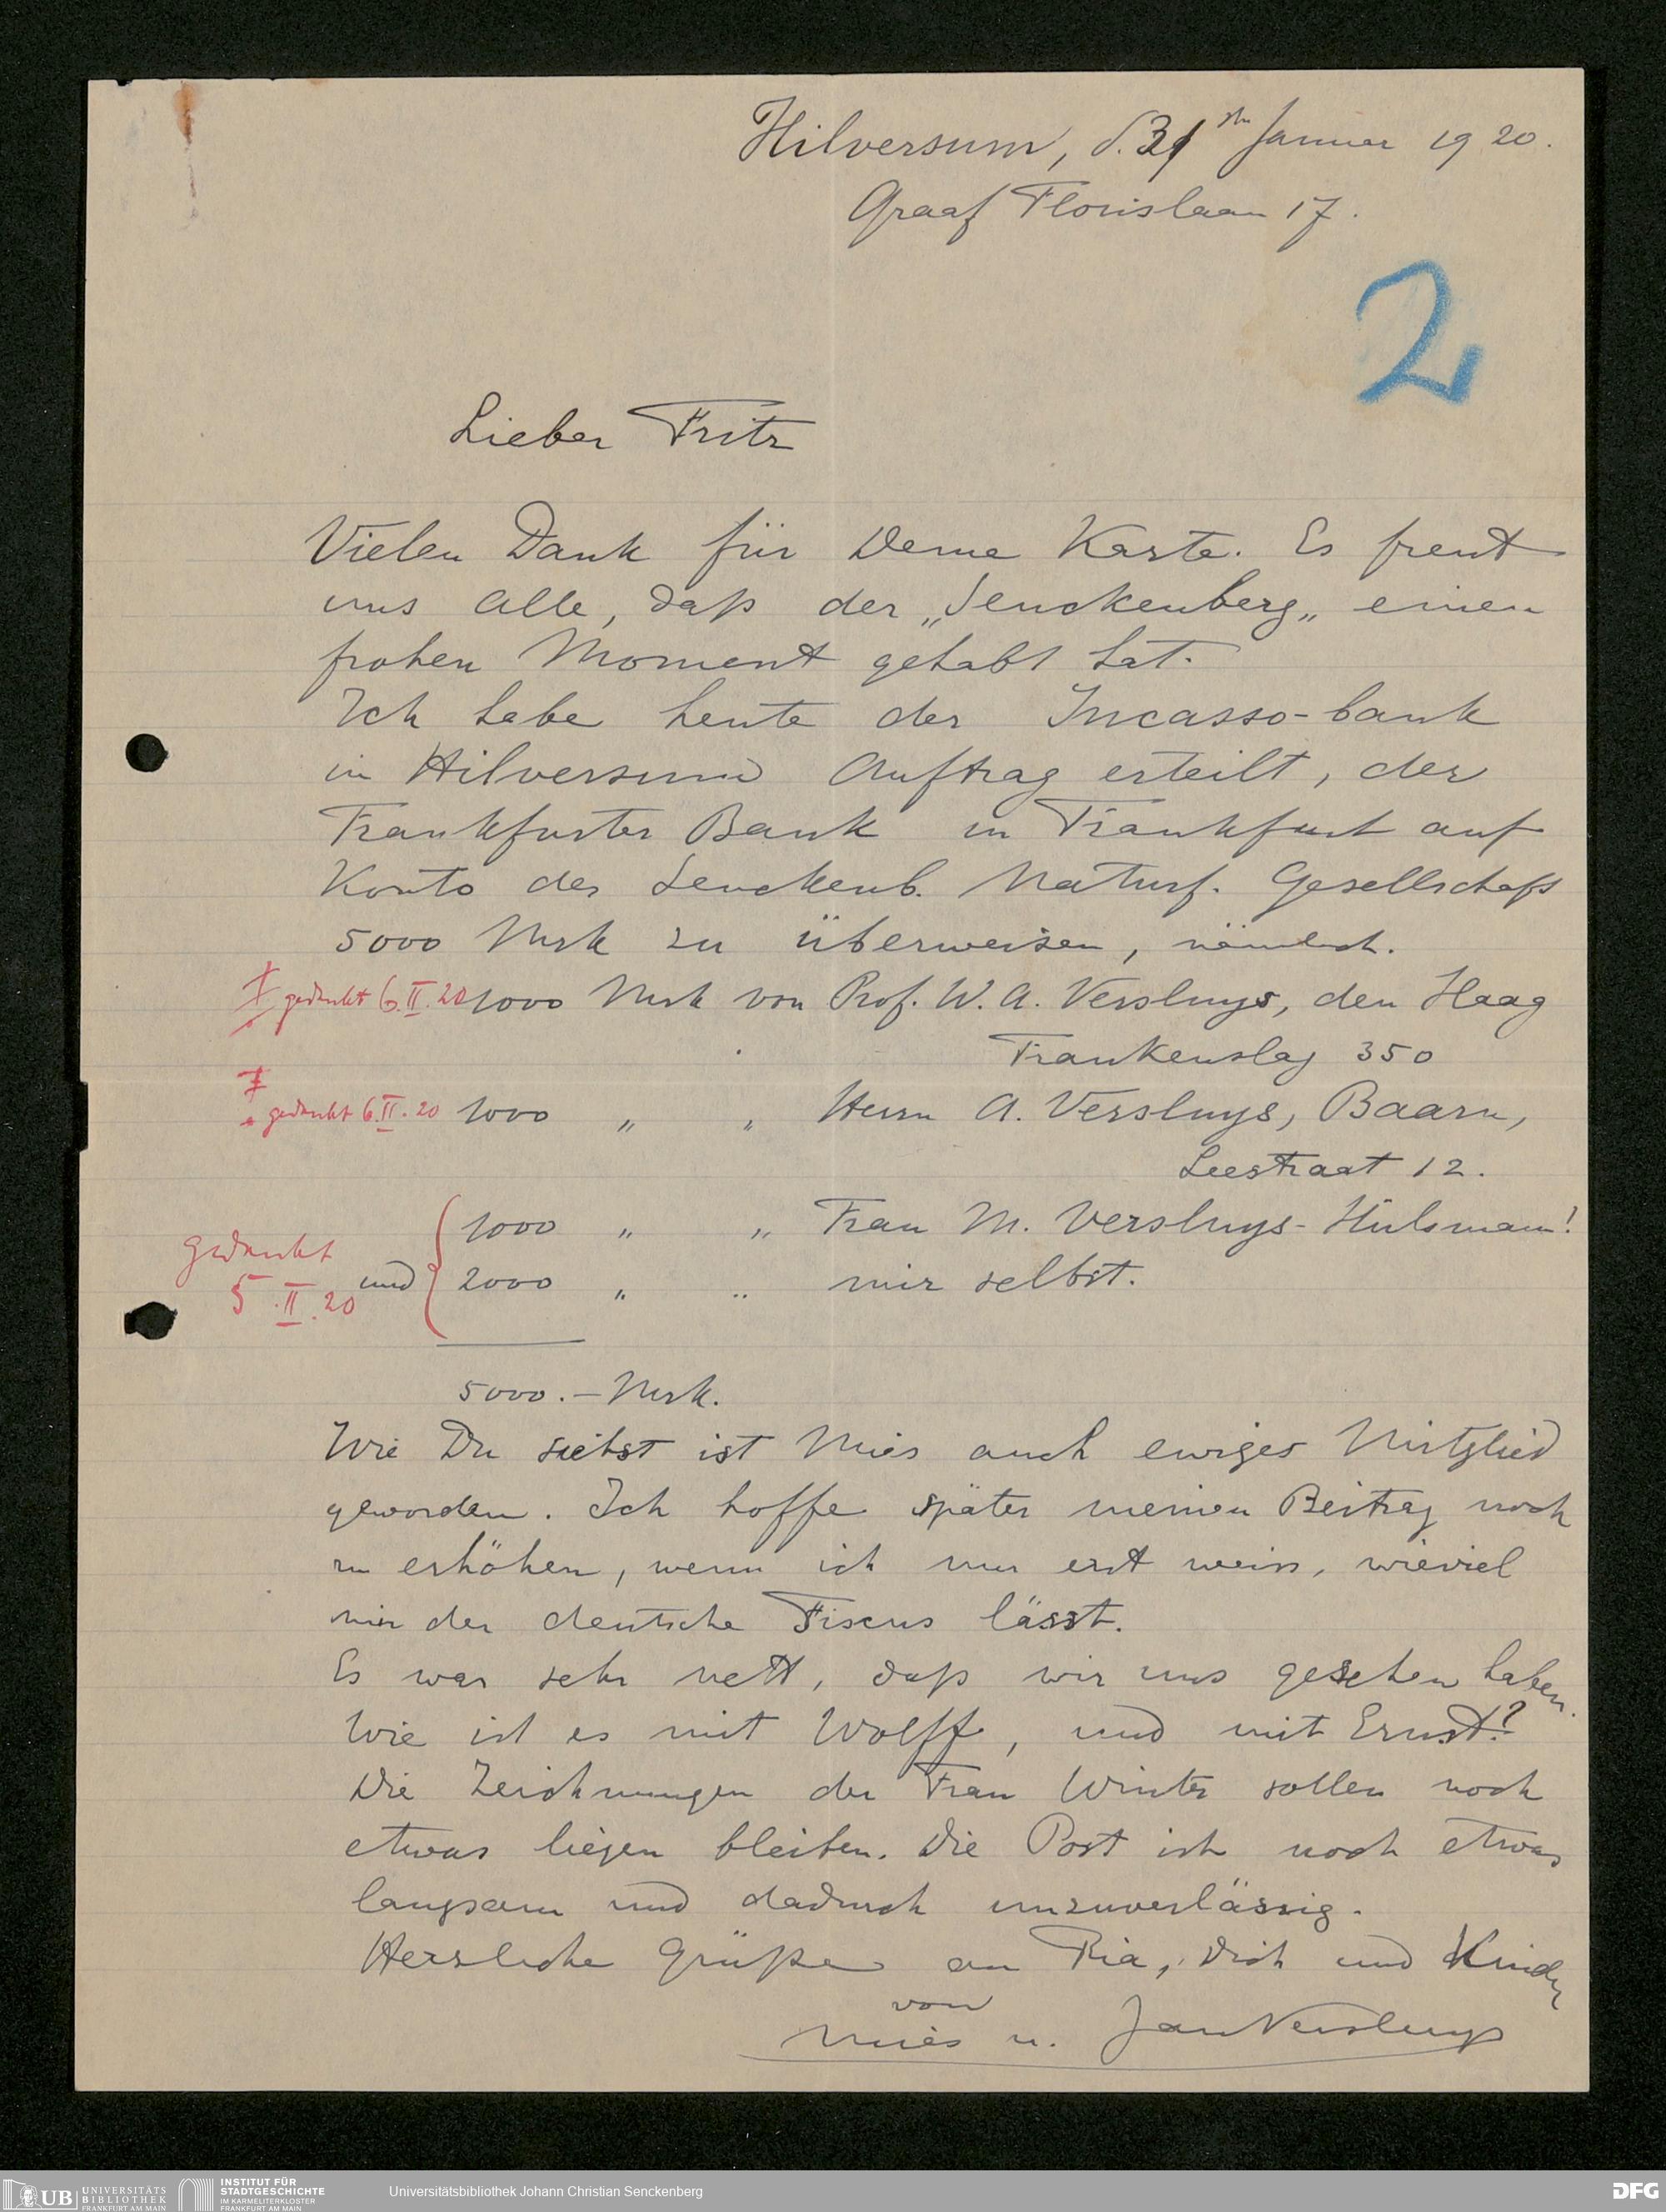 Hilversum, d. 31ten Januar 1920.
Graaf Florislaan 17.
2
Lieber Fritz
Vielen Dank für Deine Karte. Es freut
uns alle, daß der „Senckenberg„ einen
frohen Moment gehabt hat.
Ich habe heute der Incasso-bank
in Hilversum Auftrag erteilt, der
Frankfurter Bank in Frankfurt auf
Konto der Senckenb. Naturf. Gesellschaft
5000 Mrk zu überweisen, nämlich.
gedankt 6.II.20 1000 Mrk von Prof. W. A. Versluys, den Haag
Frankenslag 350
gedankt 6.II.20 1000 „ „ Herrn A. Versluys, Baarn,
Leestraat 12.
1000 „ „ Frau M. Versluys-Hülsmann!
gedankt
5.II.20
und 2000 „ „ mir selbst.
5000.— Mrk.
Wie Du siehst ist Mies auch ewiges Mitglied
geworden. Ich hoffe später meinen Beitrag noch
zu erhöhen, wenn ich nur erst weiss, wieviel
mir der deutsche Fiscus lässt.
Es war sehr nett, daß wir uns gesehen haben.
Wie ist es mit Wolff, und mit Ernst?
Die Zeichnungen der Frau Winter sollen noch
etwas liegen bleiben. Die Post ist noch etwas
langsam und dadurch unzuverlässig.
Herzliche Grüße an Ria, Dich und Kinder
von
Mies u. Jan Versluys
UB UNIVERSITÄTS
BIBLIOTHEK
FRANKFURT AM MAIN
INSTITUT FÜR
STADTGESCHICHTE
IM KARMELITERKLOSTER
FRANKFURT AM MAIN
Universitätsbibliothek Johann Christian Senckenberg
DFG